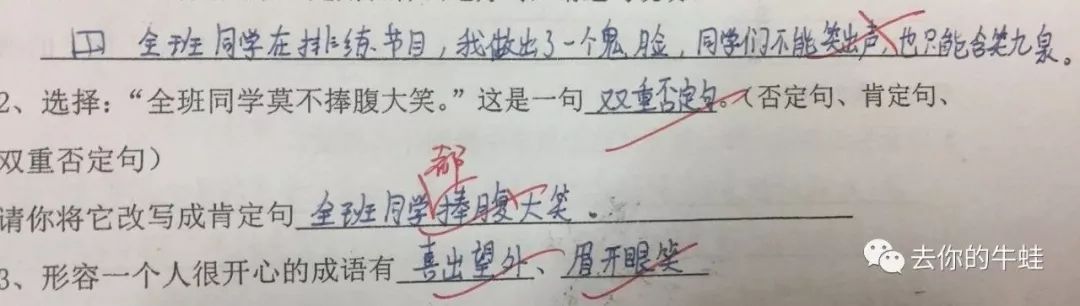 全班同学在排练节目，我做出了一个鬼脸，同学们不能笑出声，也只能含笑九泉。
2、选择：“全班同学莫不捧腹大笑。”这是一句 双重否定句。（否定句、肯定句、
双重否定句）
都
请你将它改写成肯定句 全班同学捧腹大笑。
3、形容一个人很开心的成语有 喜出望外、眉开眼笑
去你的牛蛙